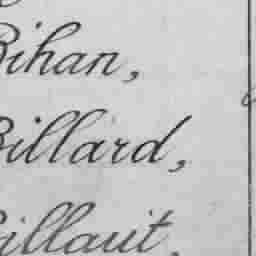 Bihan,
Billard,
Billaut,